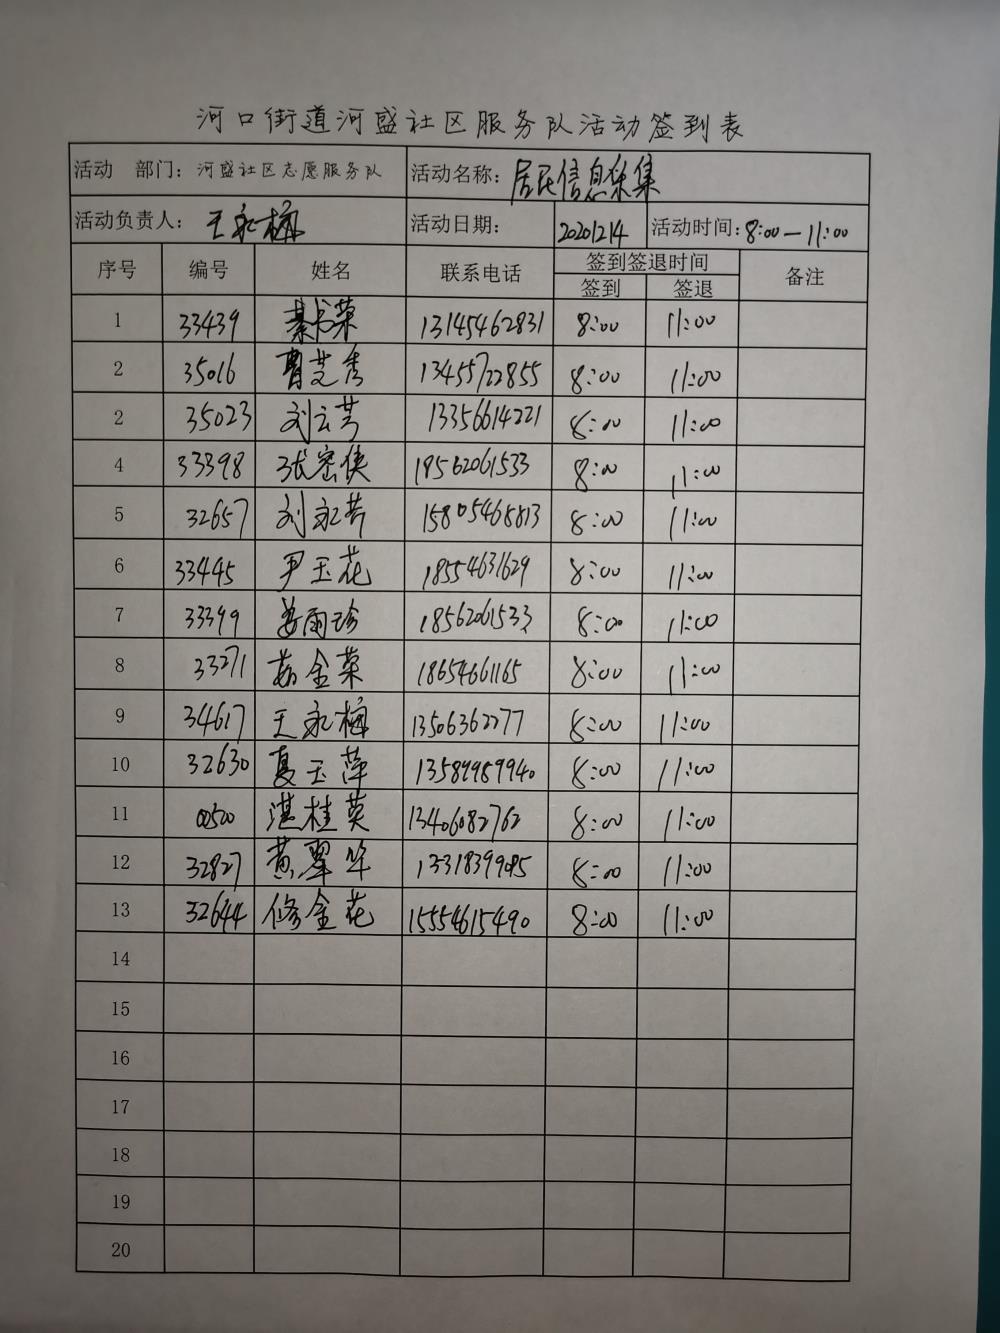 河口街道河盛社区服务队活动签到表
活动 部门：河盛社区志愿服务队 活动名称：居民信息采集
活动负责人：王永梅 活动日期： 20201214 活动时间：8:00—11:00
序号 编号 姓名 联系电话 签到签退时间 备注
签到 签退
1 33439 綦书荣 13145462831 8:00 11:00
2 35016 曹芝秀 13455722855 8:00 11:00
2 35023 刘云芳 13356614221 8:00 11:00
4 33398 张密侠 18562061533 8:00 11:00
5 32657 刘永芳 15805468813 8:00 11:00
6 33445 尹玉花 18554631629 8:00 11:00
7 33399 姜雨珍 18562061533 8:00 11:00
8 33271 金荣 18654661165 8:00 11:00
9 34617 王永梅 13506362277 8:00 11:00
10 32630 夏玉萍 13589989940 8:00 11:00
11 00520 湛桂英 13406082762 8:00 11:00
12 32827 黄翠华 8:00 11:00
13 32644 修金花 15554615490 8:00 11:00
14
15
16
17
18
19
20